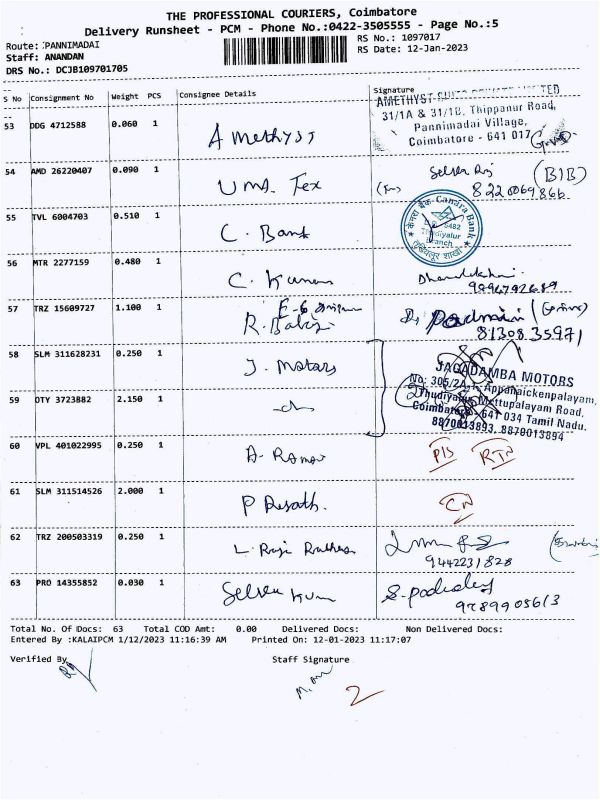 THE PROFESSIONAL COURIERS, Coimbatore
Delivery Runsheet - PCM - Phone No.:0422-3505555 - Page No.:5
Route: PANNIMADAI
RS No.: 1097017
Staff: ANANDAN
RS Date: 12-Jan-2023
DRS No.: DCJB109701705
S No Consignment No Weight PCS Consignee Details Signature
AMETHYST
31/1A & 31/1B, Thippanur Road,
Pannimadai Village,
Coimbatore - 641 017
53 DDG 4712588 0.060 1 Amethyst
54 AMD 26220407 0.090 1 UMS Tex (BIB)
55 TVL 6004703 0.510 1 C. Bank
केनरा बैंक Canara Bank
Thudiyalur
Branch
56 MTR 2277159 0.480 1 C. Kumar
57 TRZ 15609727 1.100 1 R. Babu
8130835971
58 SLM 311628231 0.250 1 J. Motors
JAGADAMBA MOTORS
No: 305/2A, Appanaickenpalayam,
Thudiyalur, Mettupalayam Road,
Coimbatore - 641 034 Tamil Nadu.
8870013893, 8870013894
59 OTY 3723882 2.150 1 -do-
60 VPL 401022995 0.250 1 RTN
61 SLM 311514526 2.000 1 CN
62 TRZ 200503319 0.250 1
9442231828
63 PRO 14355852 0.030 1 Selva Kum
9789905613
Total No. Of Docs: 63 Total COD Amt: 0.00 Delivered Docs: Non Delivered Docs:
Entered By :KALAIPCM 1/12/2023 11:16:39 AM Printed On: 12-01-2023 11:17:07
Verified By
Staff Signature
2